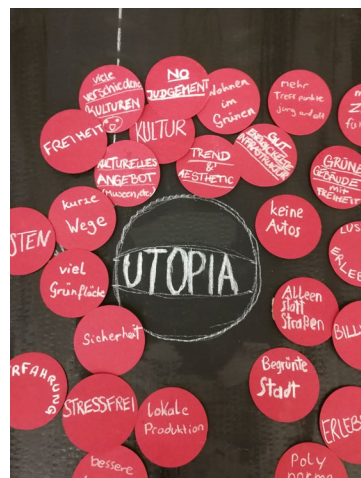 viele
verschiedene
KULTUREN
NO
JUDGEMENT
Wohnen
im
Grünen
mehr
Treffpunkte
jung und alt
FREIHEIT
KULTUR
KULTURELLES
ANGEBOT
(Museen, etc.)
TREND
&
AESTHETIC
GUT
INFRASTRUKTUR
GRÜNE
GEBÄUDE
mit
FREIHEIT
kurze
Wege
keine
Autos
STEN
LUS
ERLEB
viel
Grünfläche
UTOPIA
Alleen
statt
Straßen
BILL
Sicherheit
Begrünte
Stadt
ERFAHRUNG
STRESSFREI
lokale
Produktion
ERLEBS
bessere
Poly